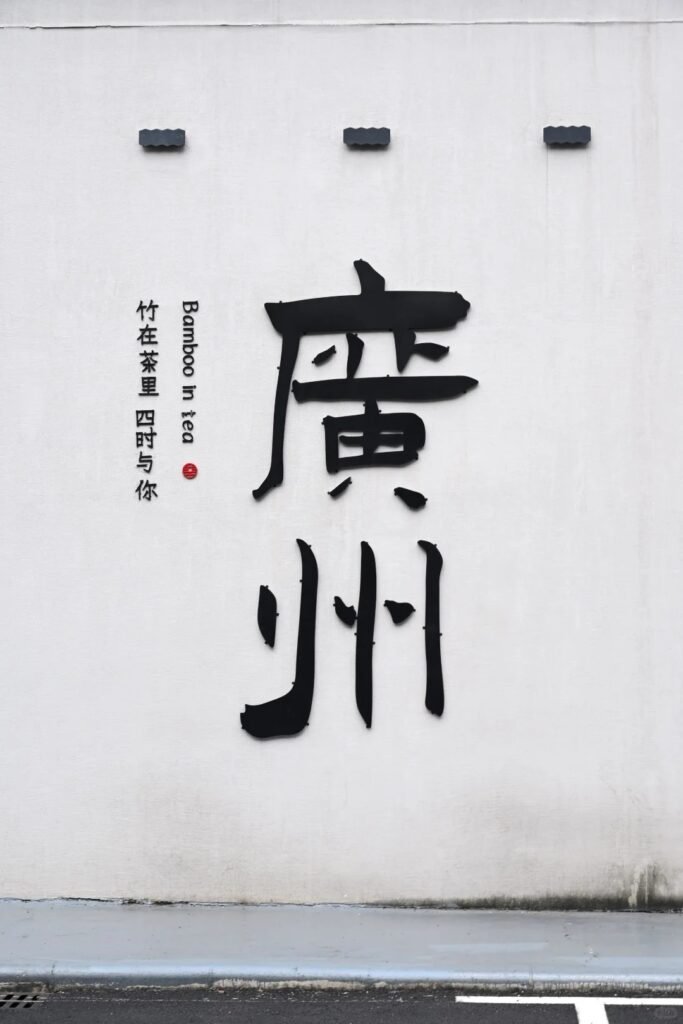 廣州
Bamboo in tea
竹在茶里 四时与你